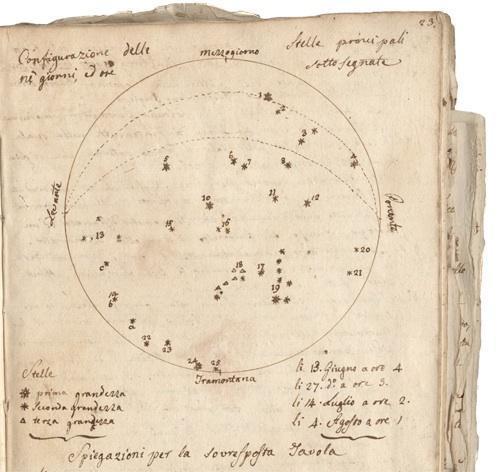 23.
Configurazione delle
ne' giorni, ed ore
mezzogiorno
Stelle principali
sotto segnate
1
2
3
4
5
6
7
8
10
11
12
Levante
Ponente
13
15
16
20
c
18
17
21
14
b
19
a
22
23
24
25
Tramontana
Stelle
prima grandezza
seconda grandezza
terza grandezza
li 13. Giugno a ore 4
li 27. do. a ore 3.
li 14. Luglio a ore 2.
li 4. Agosto a ore 1
Spiegazioni per la sovresposta Tavola